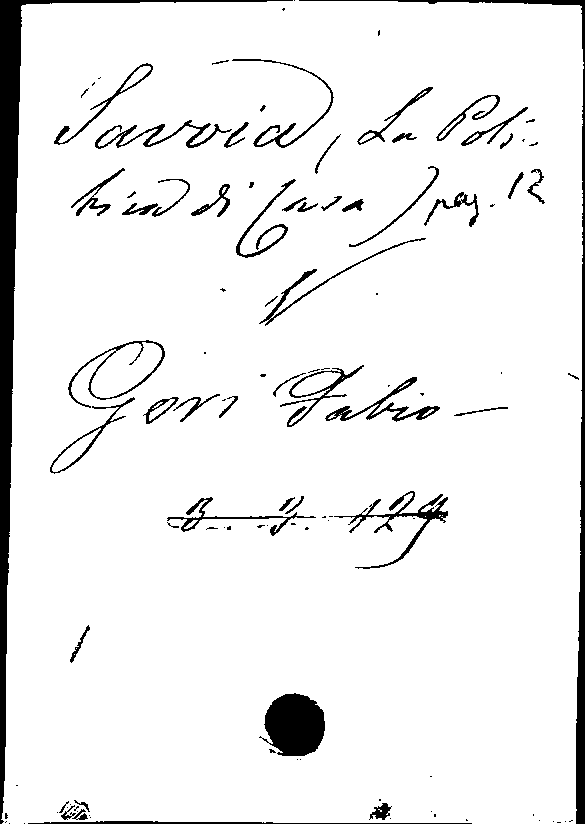 Savoia, La Poli-
tica di Casa) pag. 12
V
Gori Fabio —
B. 3. 129
1